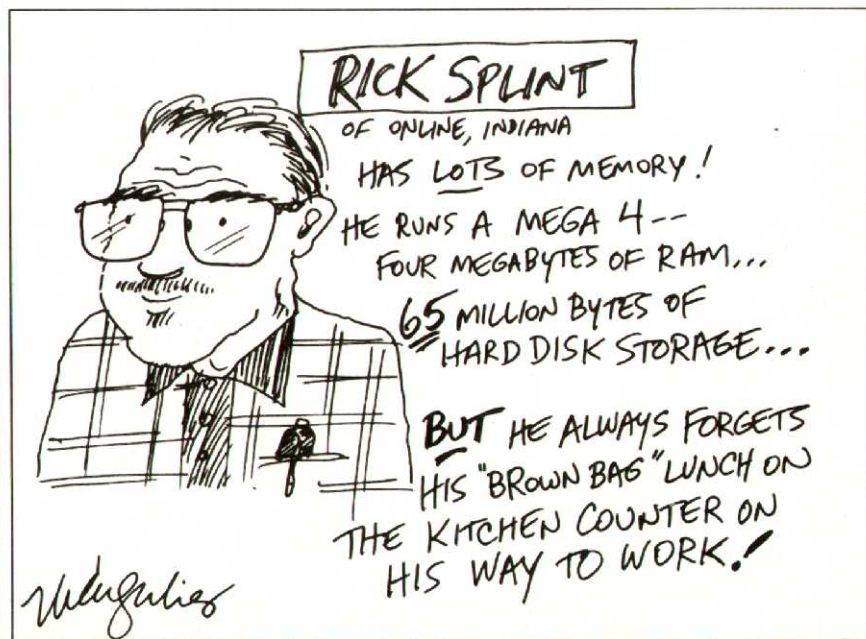 RICK SPLINT
OF ONLINE, INDIANA
HAS LOTS OF MEMORY!
HE RUNS A MEGA 4--
FOUR MEGABYTES OF RAM...
65 MILLION BYTES OF
HARD DISK STORAGE...
BUT HE ALWAYS FORGETS
HIS "BROWN BAG" LUNCH ON
THE KITCHEN COUNTER ON
HIS WAY TO WORK!